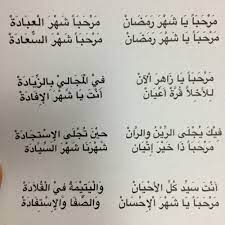 مَرْحَباً يَا شَهْرَ رَمَضَانْ مَرْحَباً شَهْرَ العِبَادَةْ
مَرْحَباً يَا شَهْرَ رَمَضَانْ مَرْحَباً شَهْرَ السَّعَادَةْ
مَرْحَباً يَا زَاهِرَ الآنْ فِيْ المَجَالِيْ بِالزِّيَادَةْ
لِلأَخِلاَّ قُرَّةْ أَعْيَانْ أَنْتَ يَا شَهْرَ الإِفَادَةْ
فِيْكَ يُجْلَى الرَّيْنْ وَالرَّانْ حِيْنَ تُجْلَى الإِسْتِجَادَةْ
مَرْحَباً ذَا خَيْرَ إِتْيَانْ شَهْرَنَا شَهْرَ السِّيَادَةْ
أَنْتَ سَيِّدْ كُلِّ الأَحْيَانْ وَاليَتِيْمَةْ فِيْ القِلاَدَةْ
مَرْحَباً يَا شَهْرَ الإِحْسَانْ وَالصَّفَا وَالإِسْتِفَادَةْ